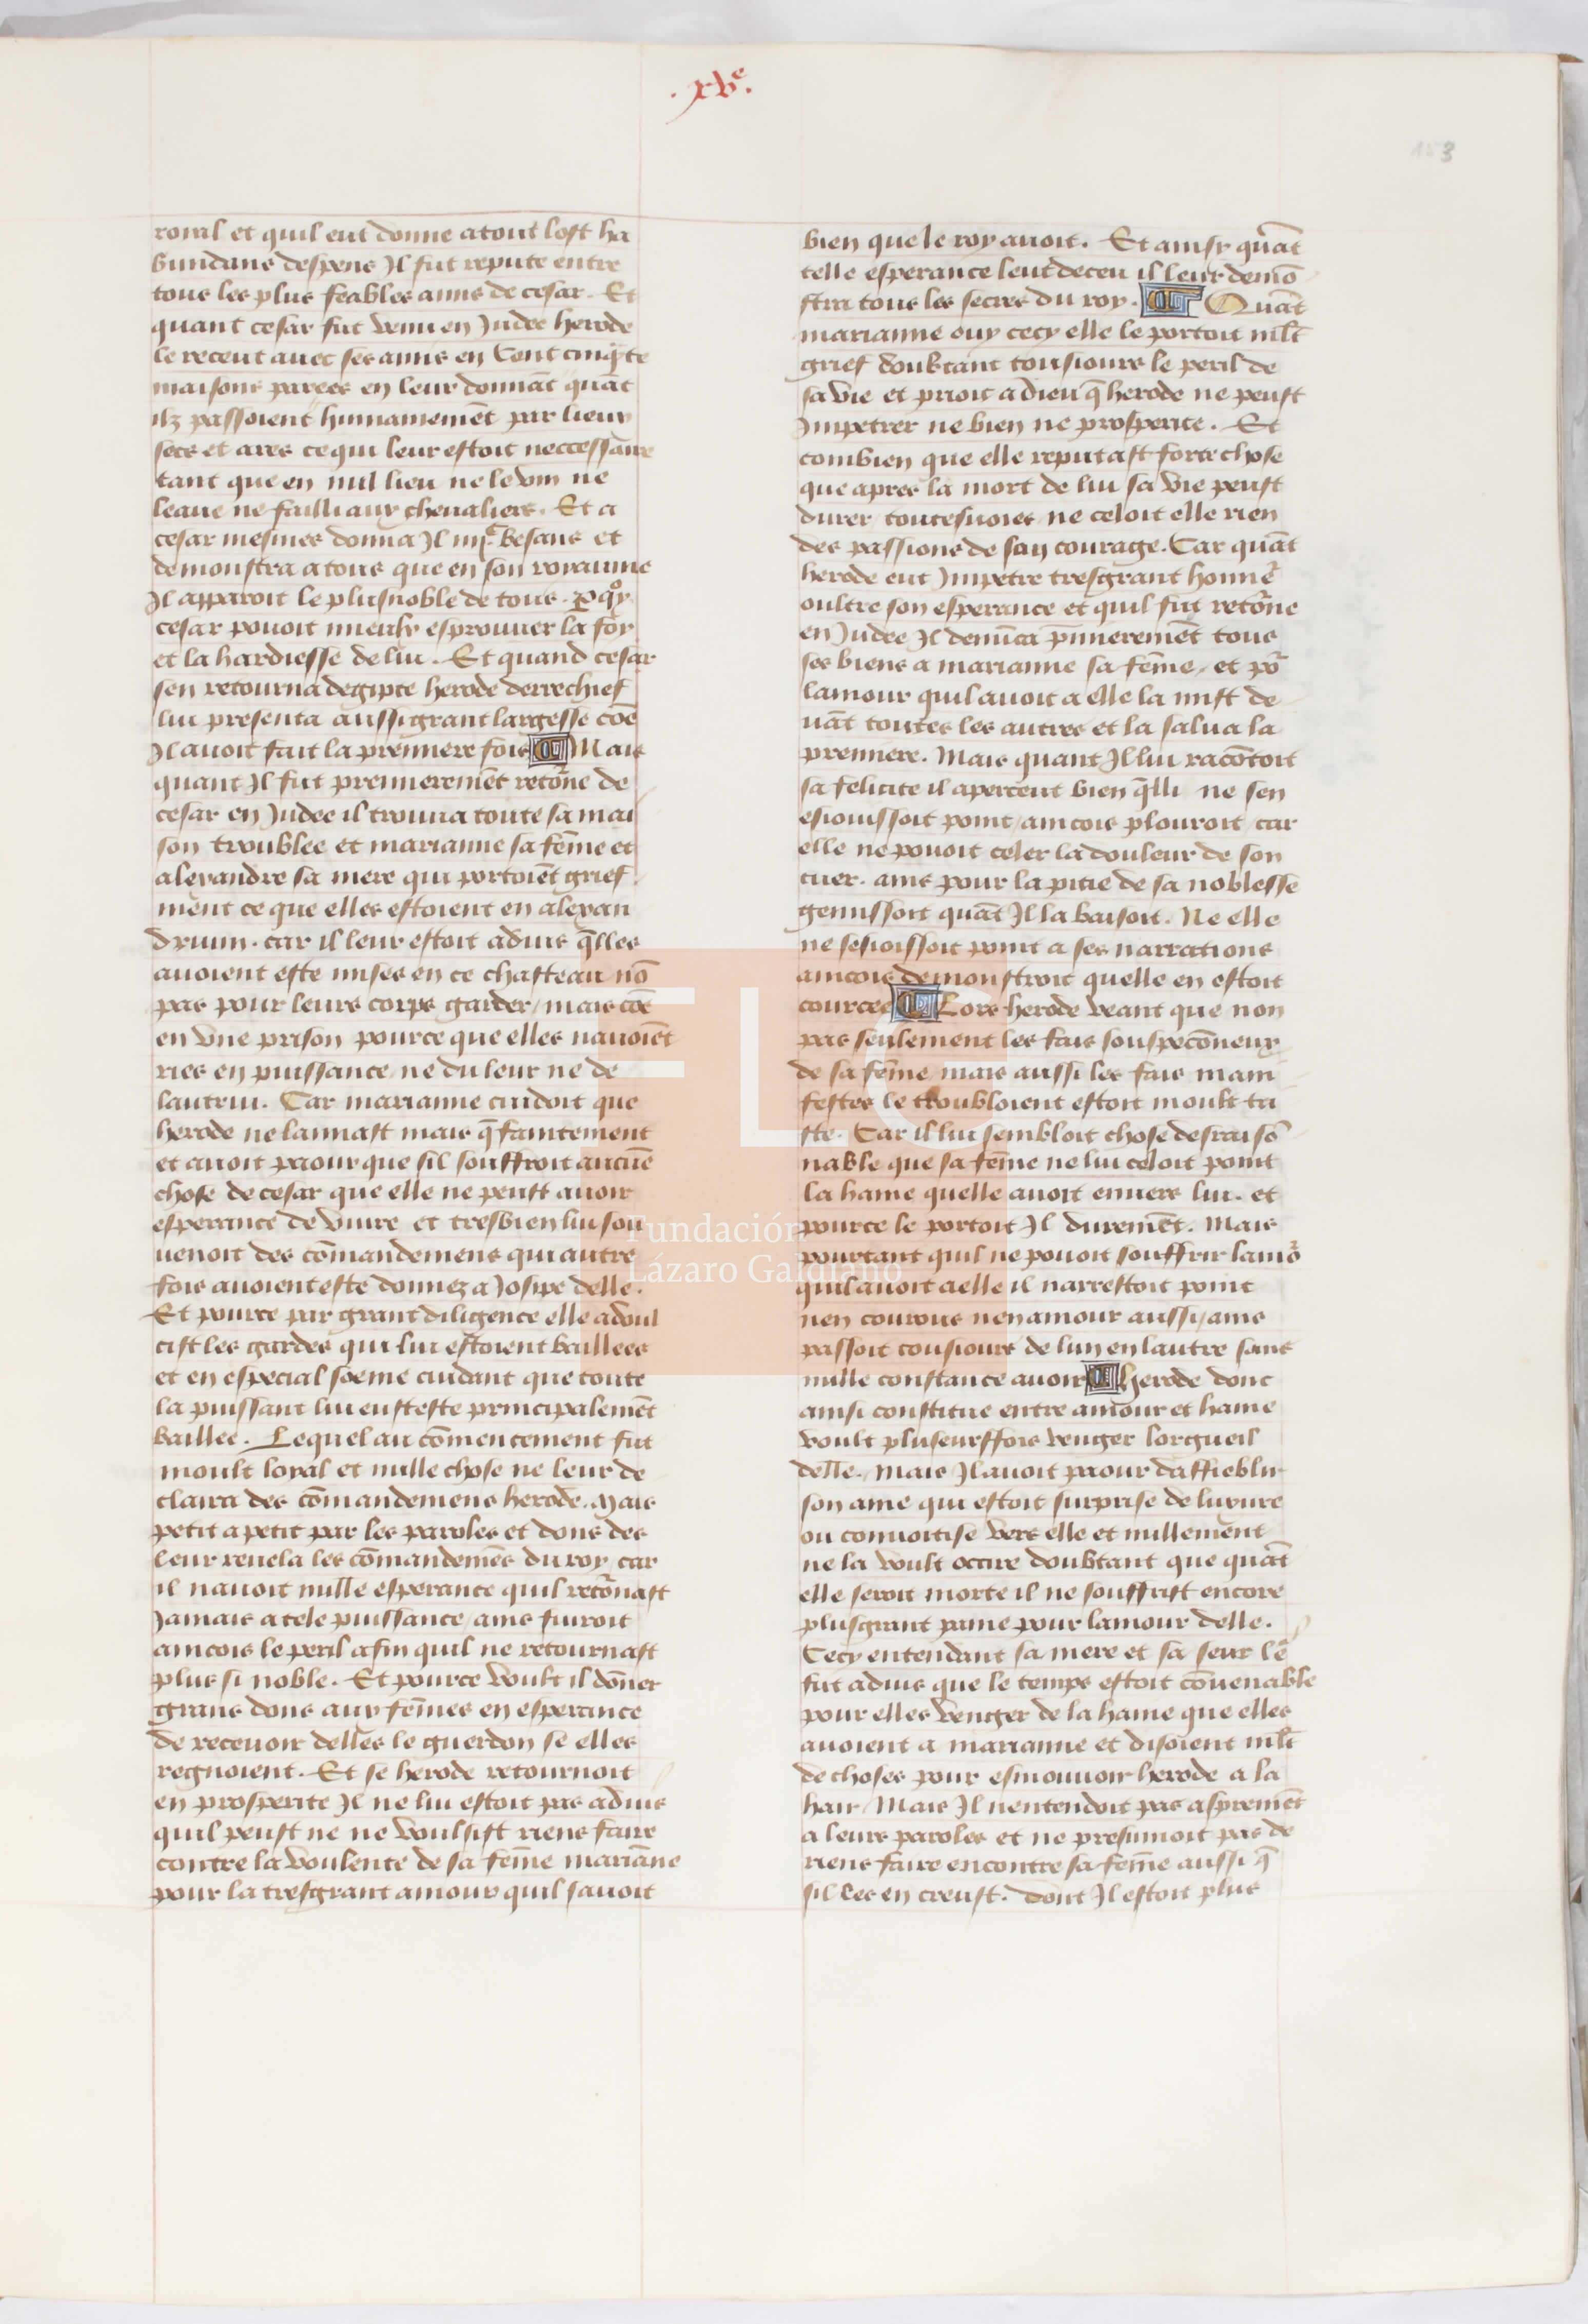 .xve.
153
roial et quil eut donne a tout lost ha
bundans despens Il fut repute entre
tous les plus feables amis de cesar. Et
quant cesar fut venu en Judee herode
le receut auec ses amis en Cent cinq̃te
maisons parees en leur donnãt quãt
ilz passoient humainemẽt par lieux
secs et ares ce qui leur estoit neccessaire
tant que en nul lieu ne le vin ne
leaue ne failli aux cheualiers. Et a
cesar mesmes donna Il iiijc besans et
demonstra a tous que en son royaume
Il apparoit le plusnoble de tous. Po quoy
cesar pouoit mieulx esprouuer la foy
et la hardiesse de lui. Et quand cesar
sen retourna degipte herode derrechief
lui presenta aussi grant largesse cõe
Il auoit fait la premiere fois Mais
quant Il fut premieremẽt retõne de
cesar en Judee il trouua toute sa mai
son troublee et marianne sa fẽme et
alexandre sa mere qui portoiẽt grief
ment ce que elles estoient en alexan
drium. car il leur estoit aduis q̃lles
auoient este mises en ce chasteau nõ
pas pour leurs corps garder, mais cõe
en vne prison pource que elles nauoiẽt
riẽs en puissance ne du leur ne de
lautrui. Car marianne cuidoit que
herode ne lamast mais q̃ faintement
et auoit paour que sil souffroit aucũe
chose de cesar que elle ne peust auoir
esperance de viure et tresbien lui sou
uenoit des cõmandemens qui autre
fois auoient este donnez a Josipe delle.
Et pource par grant diligence elle adoul
cist les gardes qui lui estoient baillees
et en especial soeme cuidant que toute
la puissant lui eust este principalemẽt
baillee. Lequel au cõmencement fut
moult loyal et nulle chose ne leur de
claira des cõmandemens herode. Mais
petit a petit par les paroles et dons des
leur reuela les cõmandemẽs du roy car
il nauoit nulle esperance quil retõnast
Jamais a tele puissance, ains fuiroit
aincois le peril afin quil ne retournast
plus si noble. Et pource voult il dõner
grans dons aux fẽmes en esperance
de receuoir delles le guerdon se elles
regnoient. Et se herode retournoit
en prosperite Il ne lui estoit pas aduis
quil peust ne ne voulsist riens faire
contre la voulente de sa fẽme mariãne
pour la tresgrant amour quil sauoit
bien que le roy auoit. Et ainsy quãt
telle esperance leut deceu il leur demõ
stra tous les secres du roy. Quãt
marianne ouy cecy elle le portoit mlt
grief doubtant tousiours le peril de
sa vie et prioit a dieu q̃ herode ne peust
Impetrer ne bien ne prosperite. Et
combien que elle reputast forte chose
que apres la mort de lui sa vie peust
durer, toutesuoies ne celoit elle rien
des passions de son courage. Car quãt
herode eut Impetre tresgrant honne᷑
oultre son esperance et quil fut retõne
en Judee Il denũca p̃mieremẽt tous
ses biens a marianne sa fẽme, et po᷑
lamour quil auoit a elle la mist de
uãt toutes les autres et la salua la
premiere. Mais quant Il lui racõtoit
sa felicite il apercent bien q̃lli ne sen
esiouissoit point, aincois plouroit, car
elle ne pouoit celer la douleur de son
cuer. ains pour la pitie de sa noblesse
gemissoit quãt Il la baisoit. Ne elle
ne sesioissoit point a ses narrations
aincois demonstroit quelle en estoit
cources Lors herode veant que non
pas seulement les fais souspecõneux
de sa fẽme mais aussi les fais mani
festes le troubloient estoit moult tri
ste. Car il lui sembloit chose desraisõ
nable que sa fẽme ne lui celoit point
la haine quelle auoit enuers lui. et
pource le portoit Il duremẽt. Mais
pourtant quil ne pouoit souffrir lamo᷑
quil auoit a elle il narrestoit point
nen courous nen amour aussi, ains
passoit tousiours de lun en lautre sans
nulle constance auoir herode donc
ainsi constitue entre amour et haine
voult pluseurffois venger lorgueil
delle. Mais Il auoit paour daffieblir
son ame qui estoit surprise de luxure
ou conuoitise vers elle et nullement
ne la voult occire doubtant que quãt
elle seroit morte il ne souffrist encore
plusgrant paine pour lamour delle.
Cecy entendant sa mere et sa seur le᷑
fut aduis que le temps estoit cõuenable
pour elles venger de la haine que elles
auoient a marianne et disoient mlt
de choses pour esmouuoir herode a la
hair. Mais Il nentendoit pas aspremẽt
a leurs paroles et ne presumoit pas de
riens faire encontre sa fẽme aussi q̃
sil les en creust. dont Il estoit plus
FLG
Fundación
Lázaro Galdiano